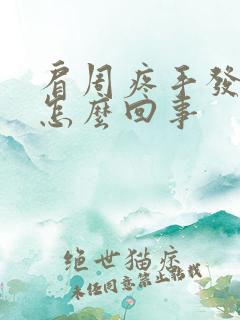 肩周疼手發
怎麼回事
绝世猫痞
未经同意禁止转载